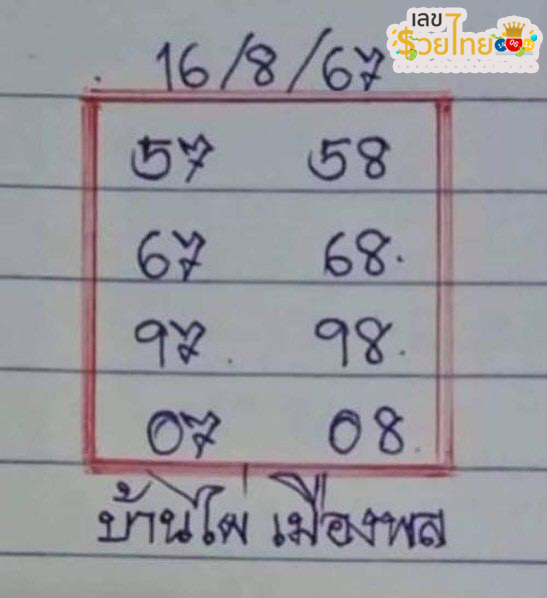 เลข 7
รวยไทย 14 06 12
16/8/67
57 58
67 68.
97. 98.
07 08.
บ้านไผ่ เมืองพล